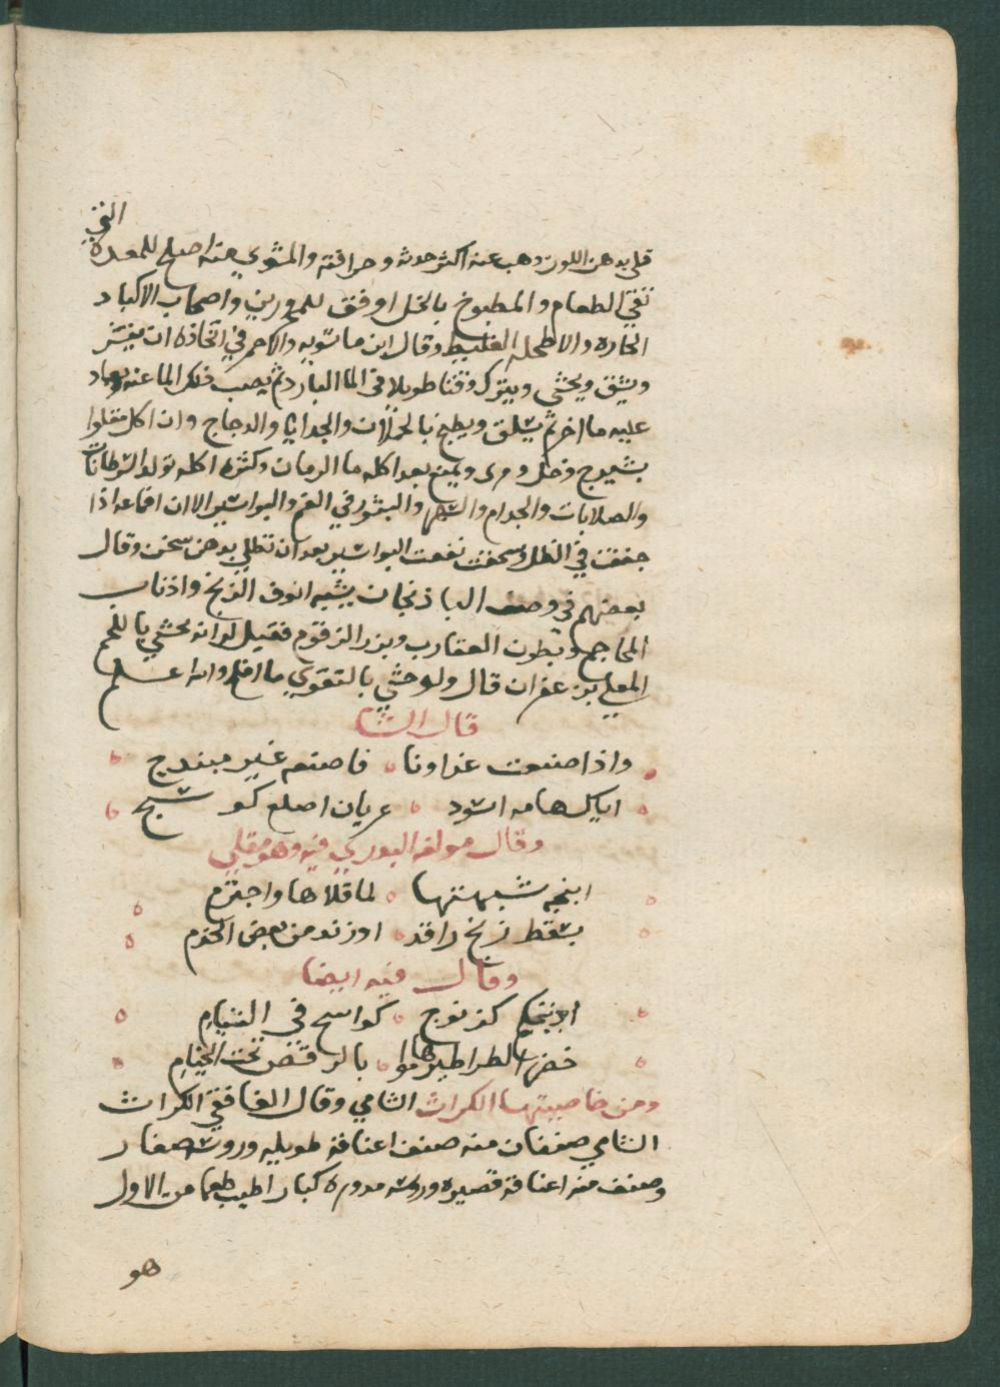 التي
قلي بدهن اللوز ذهب عنه اكثر حدته وحرافته والمشوي منه اصلح للمعدة
تقي الطعام والمطبوخ بالخل اوفق للمحرورين واصحاب الاكباد
الحاره والاطحله الغليظه وقال ابن ماسويه والاحمر في اتخاذه ان يقشر
ويشق ويحشى ويترك وقتا طويلا في الما البارد ثم يصب ذلك الما عنه ويعاد
عليه ما اخر ثم يسلق ويطبخ بالحملان والجدايا والدجاج وان اكل مقلوا
بشيرج وخل ومرى ويمتص بعد اكله ما الرمان وكثرة اكله تولد السرطانات
والصلابات والجدام والسهر والبثور في الفم والبواسير الا ان اقماعه اذا
جففت في الظل وسحقت نفعت البواسير بعد ان تطلي بدهن سخن وقال
بعضهم في وصف الباذنجان يشبه انوف الزنج واذناب
المحاجم وبطون العقارب وبزر الزقوم فقيل له انه يحشي باللحم
المعلي بزعفران قال ولو حشي بالتقوي ما افلح والله اعلم
قال الشا
واذا صنعت غداونا فاصنعه غير مبندج
اياك هامه اسود عريان اصلع كوسج
وقال مولفه البدري فيه وهو مقلي
ابنجه شبهتها لما قلاها واحتزم
بقط زنج راقد اوزند من بعض الخدم
وقال فيه ايضا
ابذنجكم كزنوج كواسج في القيام
خضر الطراطير هاموا بالرقص تحت الخيام
ومن خاصيتها الكراث الشامي وقال الغافقي الكراث
الشامي صنفان منه صنف اعناقه طويله وروسه صغار
وصنف منه اعناقه قصيره وروسه مدوره كبار اطيب طعما من الاول
هو